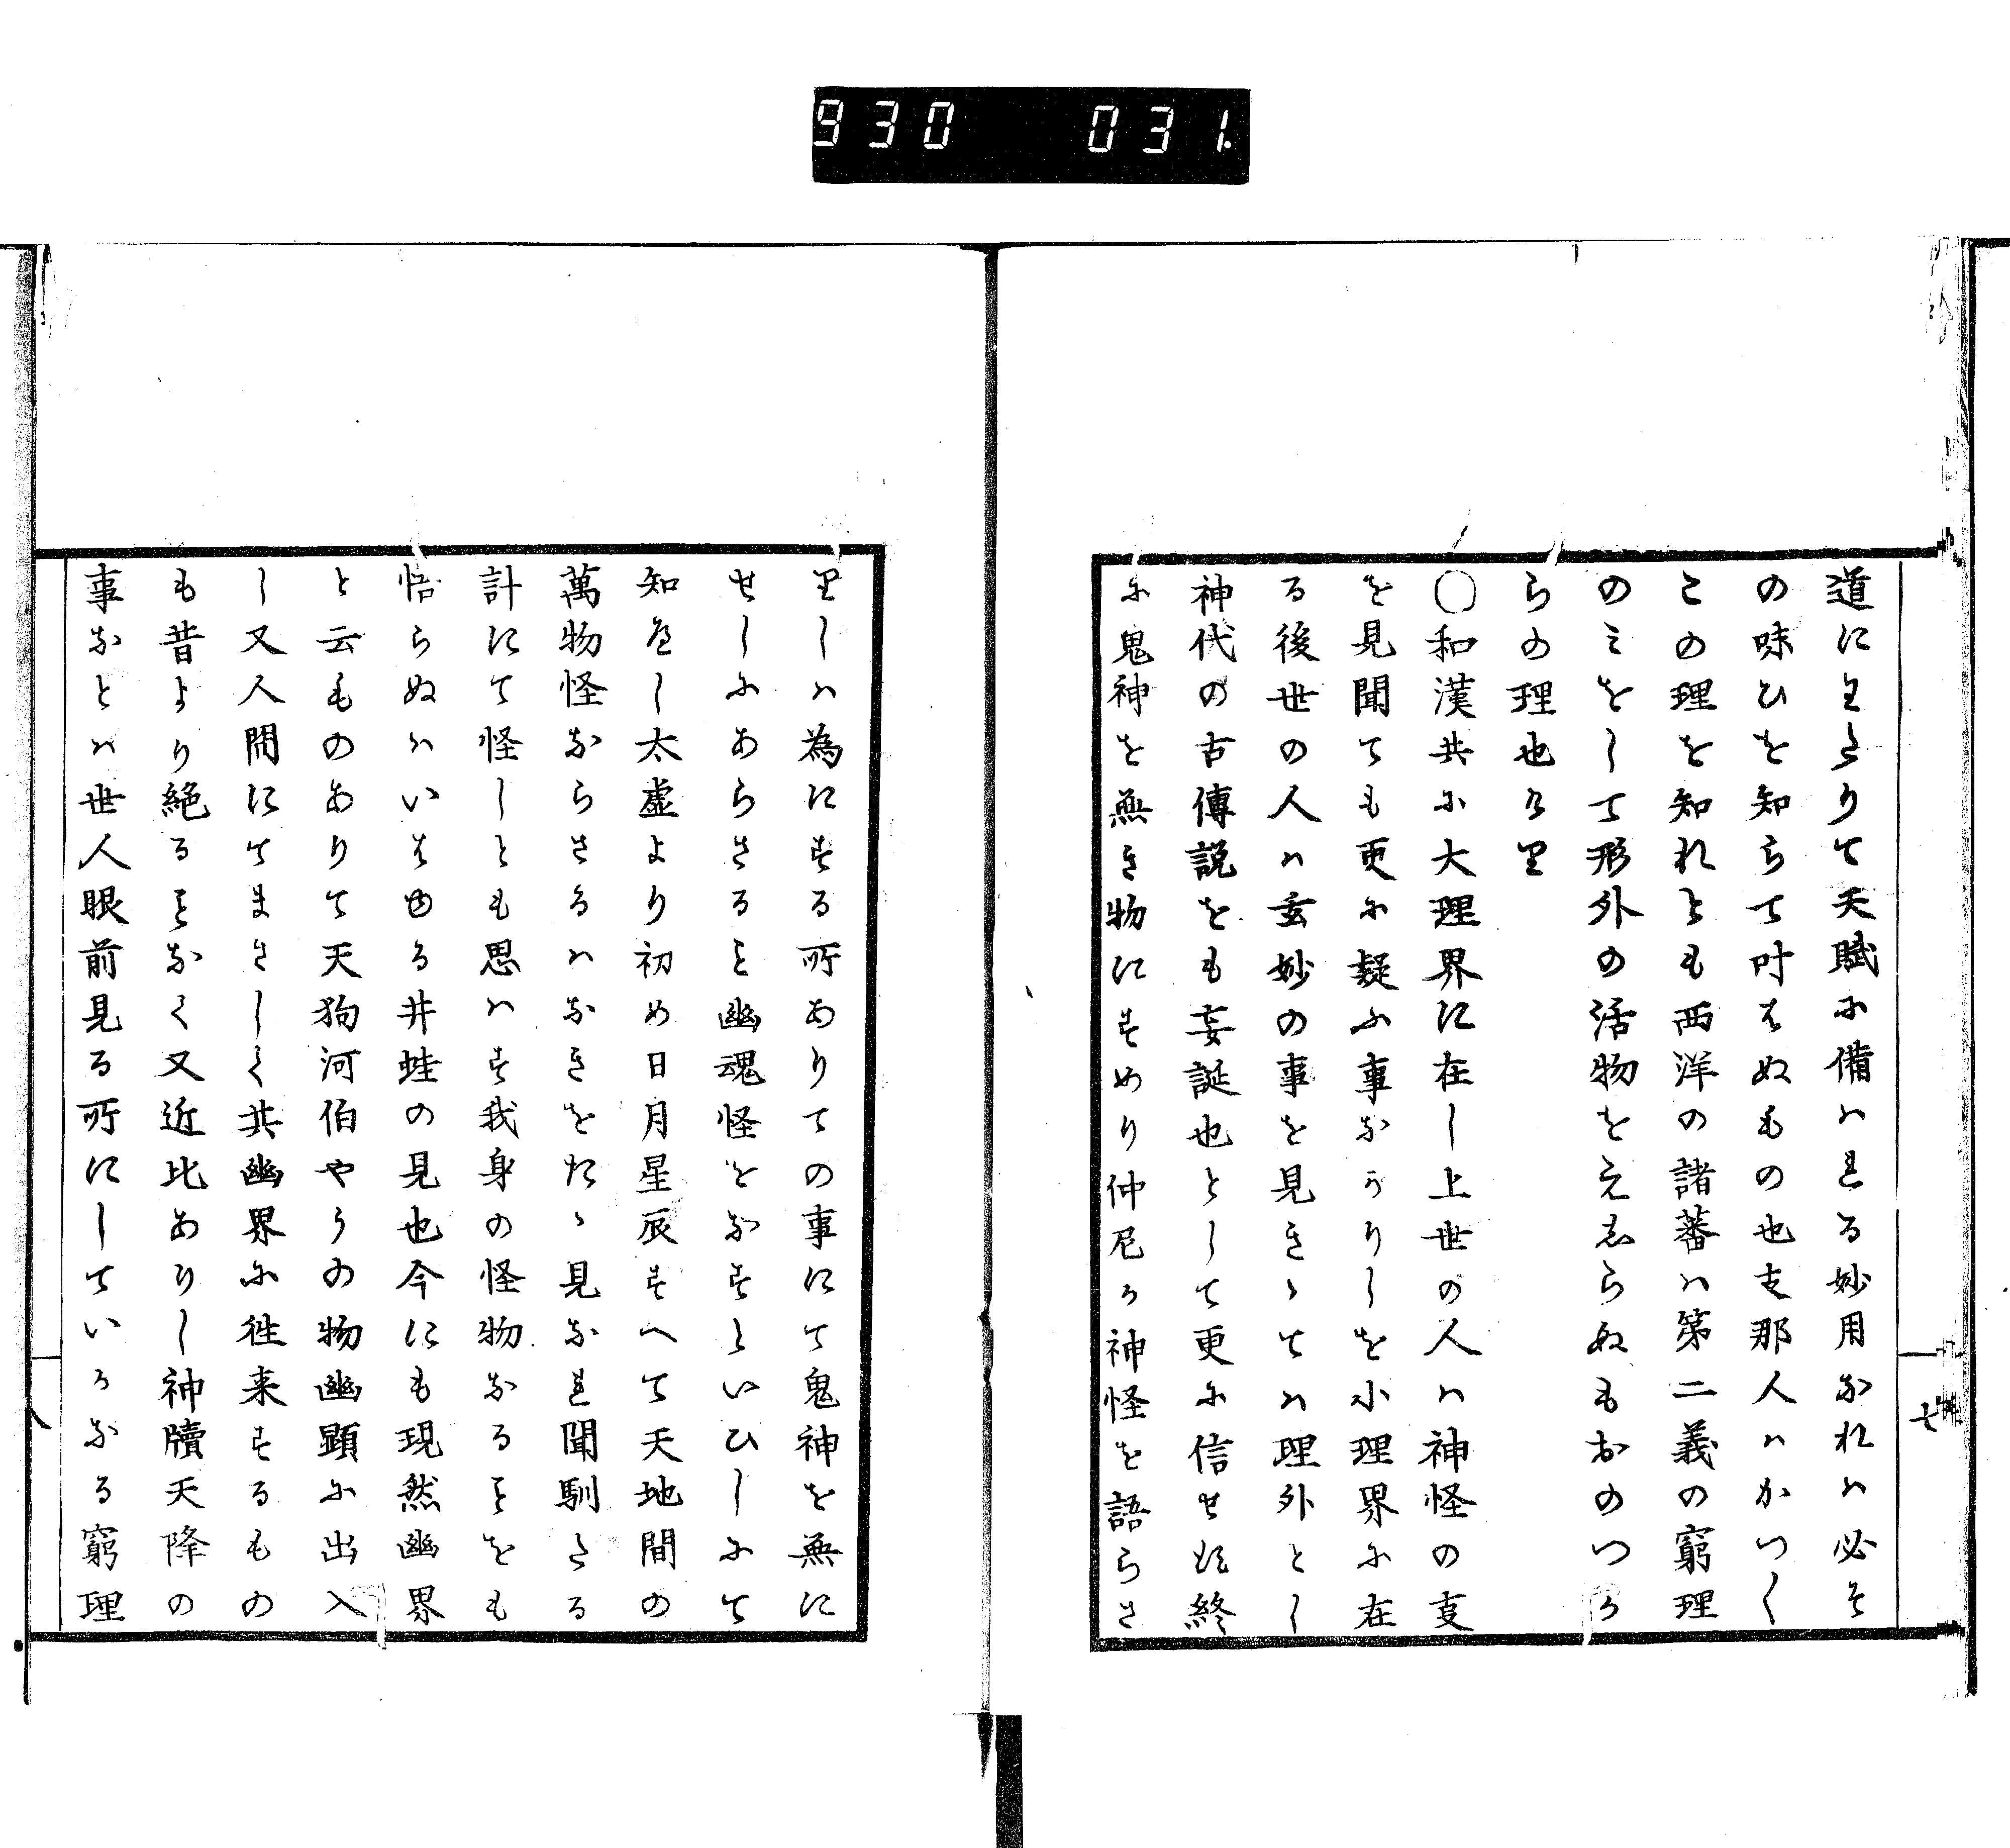 930 031.
道にわたりて天賦に備はれる妙用なれは必そ
の味ひを知らて叶はぬもの也支那人はかつ〱
この理を知れとも西洋の諸蕃は第二義の窮理
のミをして形外の活物をえしらぬもおのつか
らの理也けり
〇和漢共に大理界に在し上世の人は神怪の叓
を見聞ても更に疑ふ事なかりしを小理界に在
る後世の人は玄妙の事を見きゝては理外とし
神代の古傳説をも妄誕也として更に信せす終
に鬼神を無き物にすめり仲尼か神怪を語らさ
りしは為にする所ありての事にて鬼神を無に
せしにあらさるを幽魂怪をなすといひしにて
知へし太虚より初め日月星辰すへて天地間の
萬物怪ならさるはなきをたゝ見なれ聞馴たる
計にて怪しとも思はす我身の怪物なるをも
悟らぬはいはゆる井蛙の見也今にも現然幽界
と云ものありて天狗河伯やうの物幽顕に出入
し又人間にてまさしく共幽界に徃来するもの
も昔より絶るをなく又近比ありし神牘天降の
事なとは世人眼前見る所にしていかなる窮理
七
八